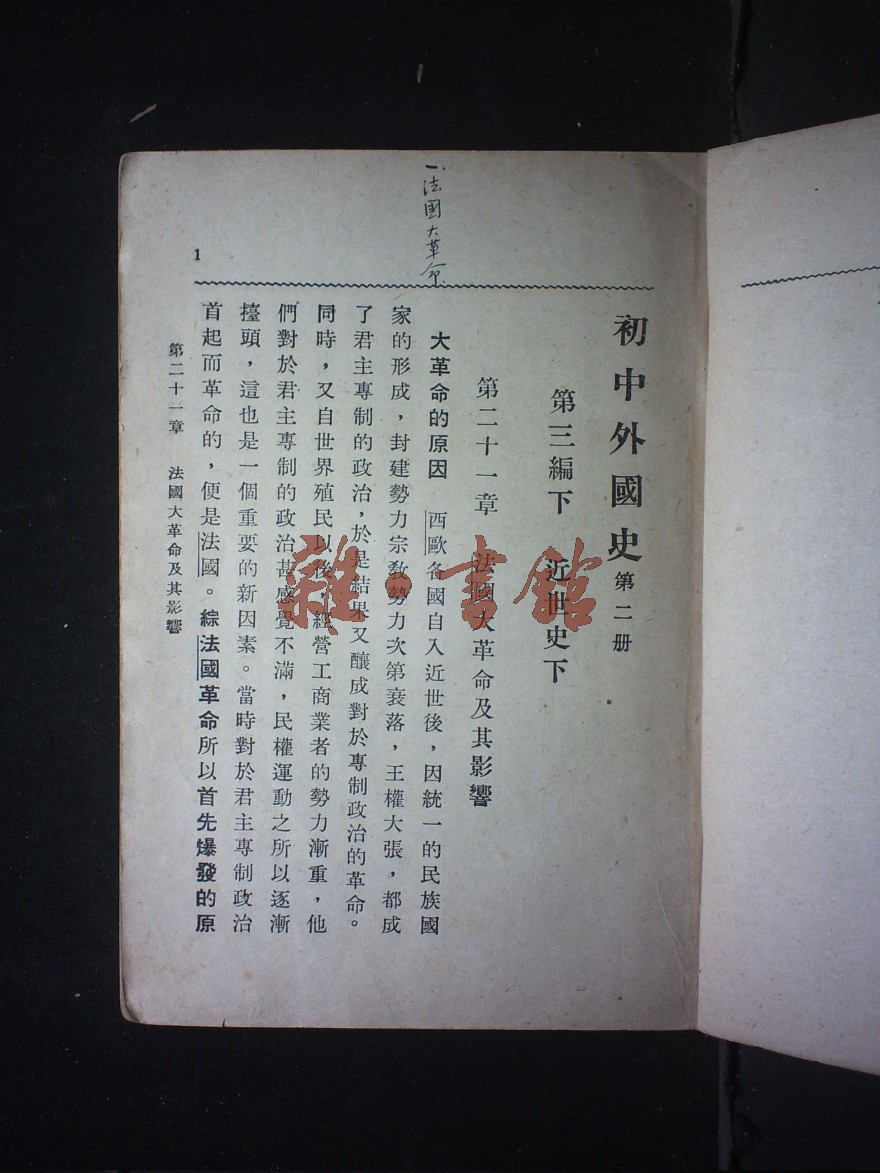 一.法國大革命
初中外國史 第二册
第三編下 近世史下
第二十一章 法國大革命及其影響
大革命的原因 西歐各國自入近世後，因統一的民族國
家的形成，封建勢力宗教勢力次第衰落，王權大張，都成
了君主專制的政治，於是結果又釀成對於專制政治的革命。
同時，又自世界殖民以後，經營工商業者的勢力漸重，他
們對於君主專制的政治甚感覺不滿，民權運動之所以逐漸
擡頭，這也是一個重要的新因素。當時對於君主專制政治
首起而革命的，便是法國。綜法國革命所以首先爆發的原
第二十一章 法國大革命及其影響
1
雜·書館